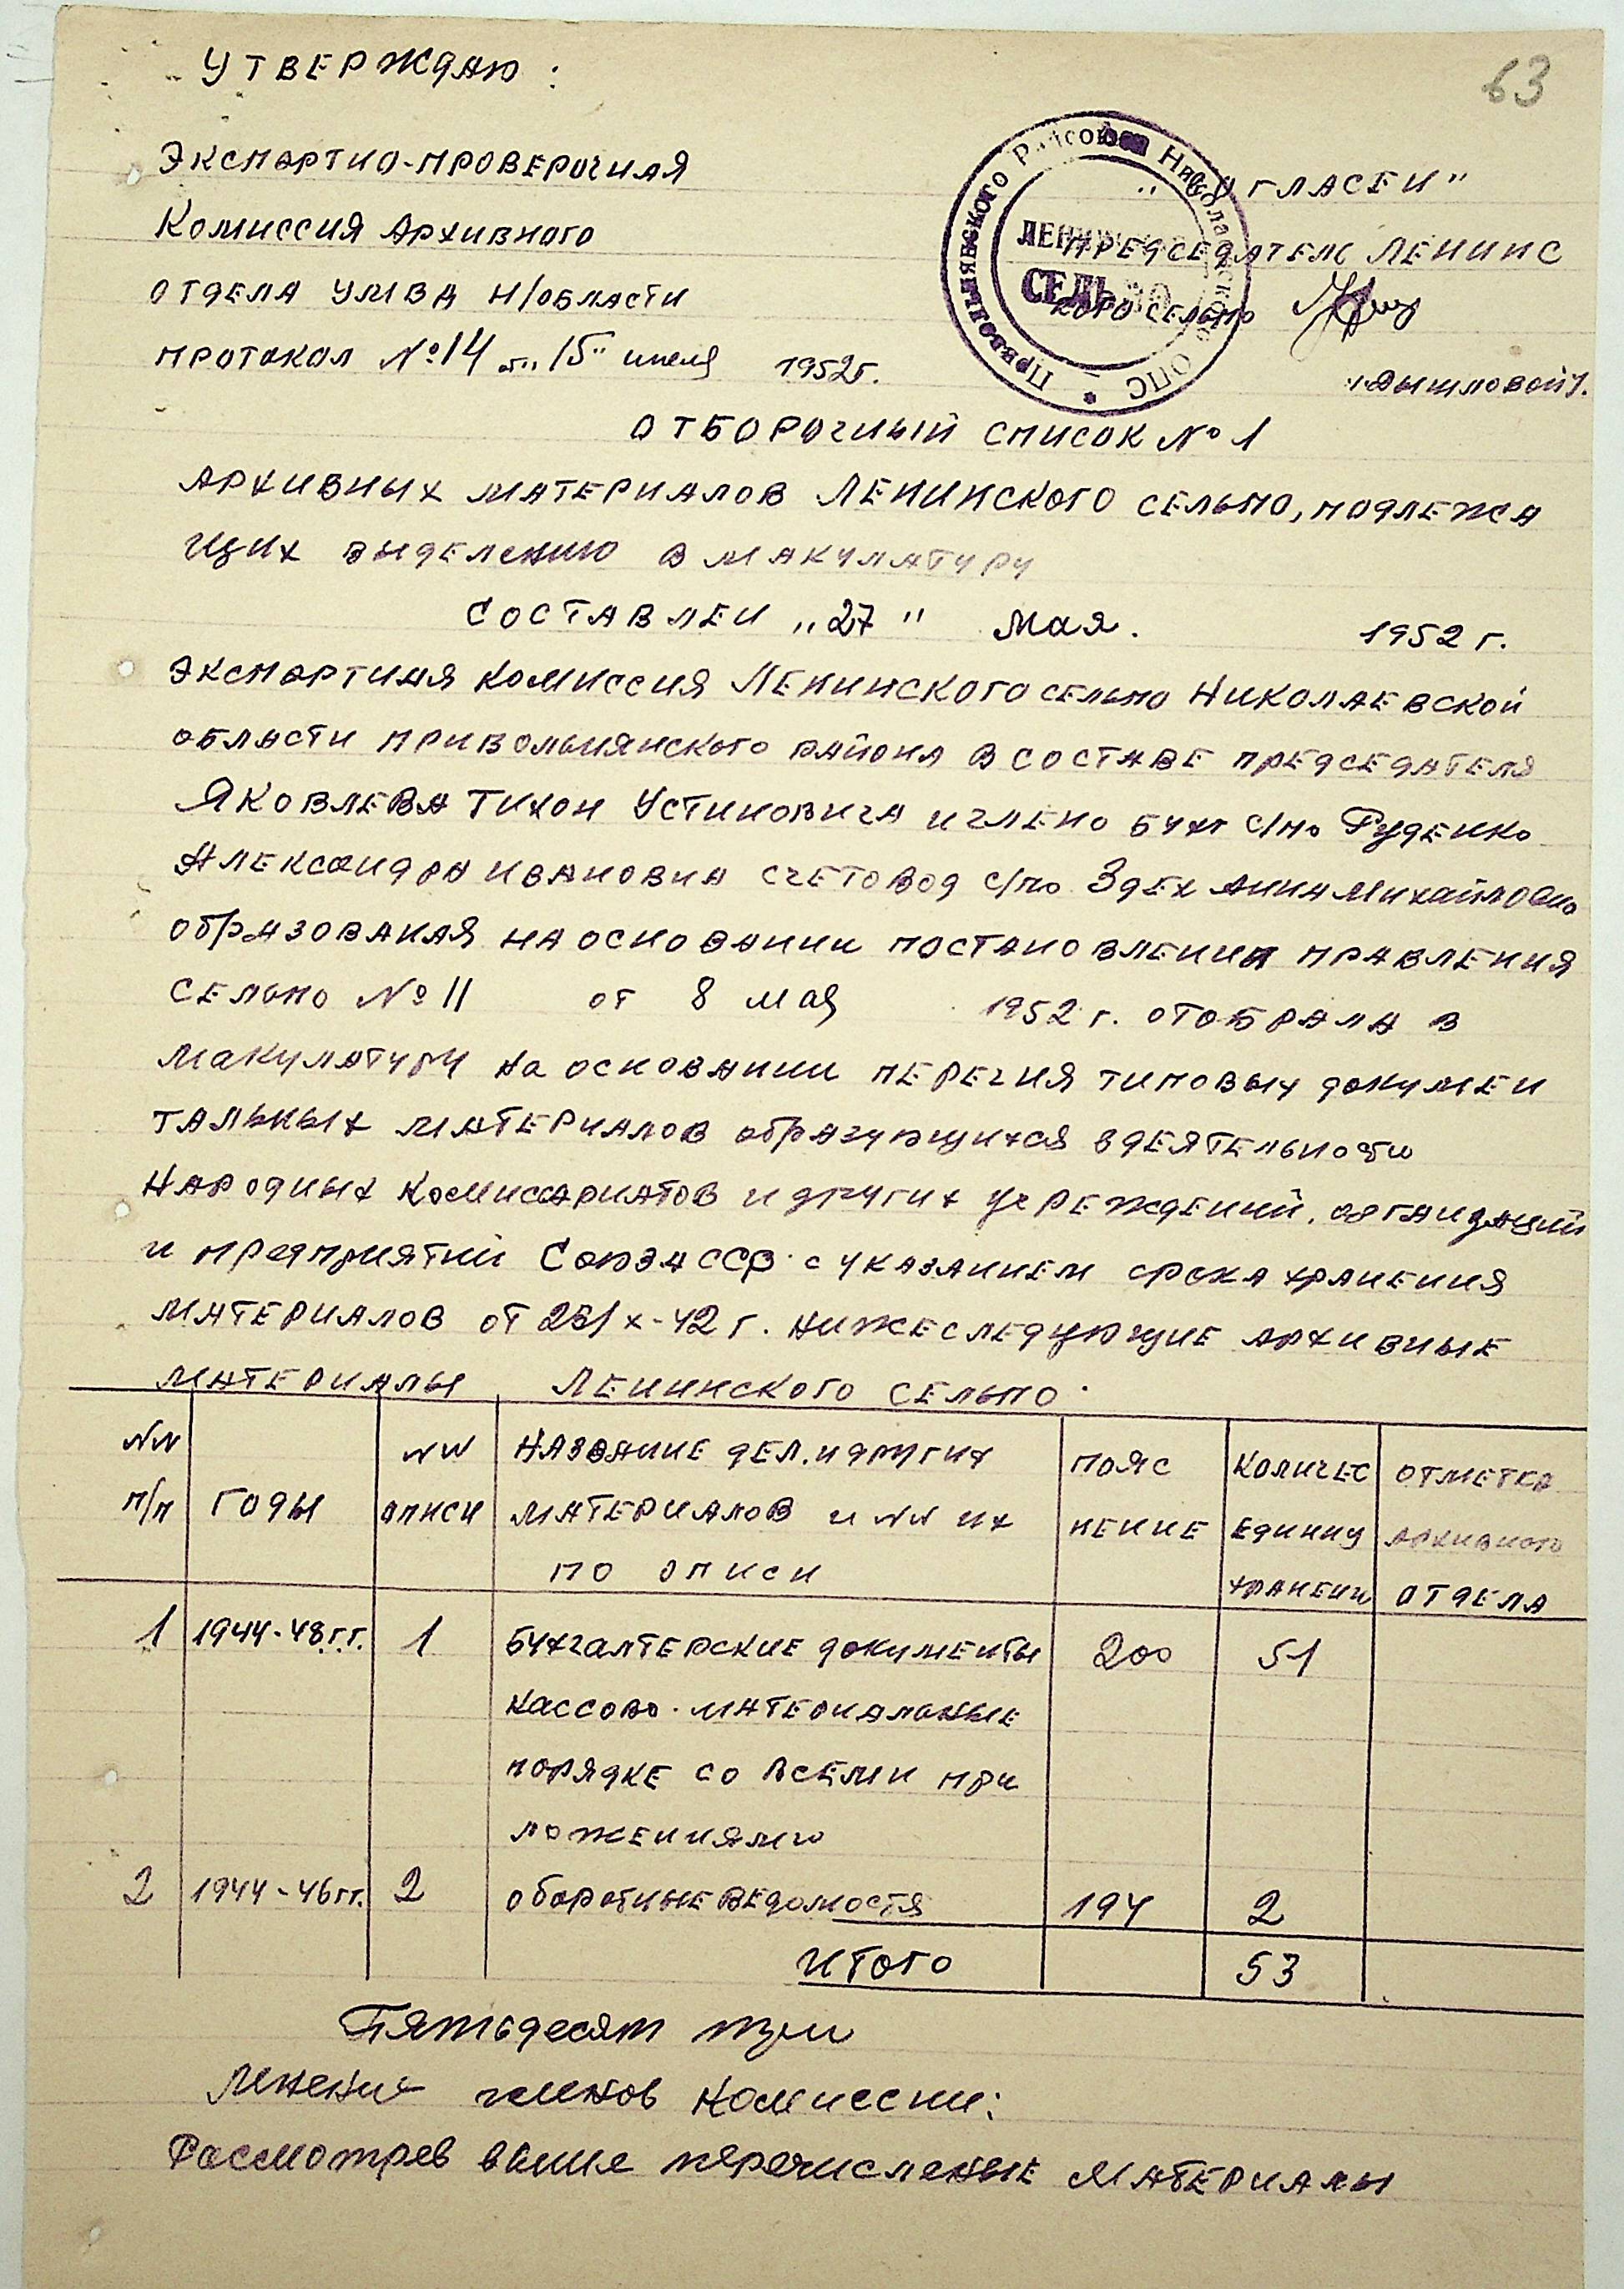 63
УТВЕРЖДАЮ:
ЭКСПЕРТНО-ПРОВЕРОЧНАЯ
КОМИССИЯ АРХИВНОГО
ОТДЕЛА УМВД Н/ОБЛАСТИ
ПРОТОКОЛ №14 от "15" 1952г.
Привольнянского Райсоюза Николаевского ОПС
ЛЕНИНСКОЕ
СЕЛЬПО
"СОГЛАСЕН"
ПРЕДСЕДАТЕЛЬ ЛЕНИНС
КОГО СЕЛЬПО
ОТБОРОЧНЫЙ СПИСОК №1
АРХИВНЫХ МАТЕРИАЛОВ ЛЕНИНСКОГО СЕЛЬПО, ПОДЛЕЖА
ЩИХ ВЫДЕЛЕНИЮ В МАКУЛАТУРУ
СОСТАВЛЕН "27" Мая. 1952 г.
ЭКСПЕРТНАЯ КОМИССИЯ ЛЕНИНСКОГО СЕЛЬПО НИКОЛАЕВСКОЙ
ОБЛАСТИ ПРИВОЛЬНЯНСКОГО РАЙОНА В СОСТАВЕ ПРЕДСЕДАТЕЛЯ
ЯКОВЛЕВА ТИХОН УСТИНОВИЧА И ЧЛЕНО БУХГ С/ПО РУДЕНКО
АЛЕКСАНДРА ИВАНОВНА СЧЕТОВОД С/ПО ЗДЕХ АННА МИХАЙЛОВНА
ОБРАЗОВАНАЯ НА ОСНОВАНИИ ПОСТАНОВЛЕНИЯ ПРАВЛЕНИЯ
СЕЛЬПО №11 ОТ 8 МАЯ 1952 г. ОТОБРАЛА В
МАКУЛАТУРУ НА ОСНОВАНИИ ПЕРЕЧНЯ ТИПОВЫХ ДОКУМЕН
ТАЛЬНЫХ МАТЕРИАЛОВ ОБРАЗУЮЩИХСЯ В ДЕЯТЕЛЬНОСТИ
НАРОДНЫХ КОМИССАРИАТОВ И ДРУГИХ УЧРЕЖДЕНИЙ, ОРГАНИЗАЦИЙ
И ПРЕДПРИЯТИЙ СОЮЗА ССР С УКАЗАНИЕМ СРОКА ХРАНЕНИЯ
МАТЕРИАЛОВ ОТ X-42 Г. НИЖЕСЛЕДУЮЩИЕ АРХИВНЫЕ
МАТЕРИАЛЫ ЛЕНИНСКОГО СЕЛЬПО
NN П/П ГОДЫ NN ОПИСИ НАЗВАНИЕ ДЕЛ. И ДРУГИХ МАТЕРИАЛОВ И NN ИХ ПО ОПИСИ ПОЯС НЕНИЕ КОЛИЧЕС ЕДИНИЦ ХРАНЕНИ ОТМЕТКА АРХИВНОГО ОТДЕЛА
1 1944-48 г.г. 1 БУХГАЛТЕРСКИЕ ДОКУМЕНТЫ 200 51
КАССОВО-МАТЕРИАЛЬНЫЕ
ПОРЯДКЕ СО ВСЕМИ ПРИ
ЛОЖЕНИЯМИ
2 1944-46 гг. 2 ОБОРОТНЫЕ ВЕДОМОСТЯ 194 2
ИТОГО 53
Пятьдесят три
Мнение членов комиссии:
Рассмотрев выше перечисленые МАТЕРИАЛЫ